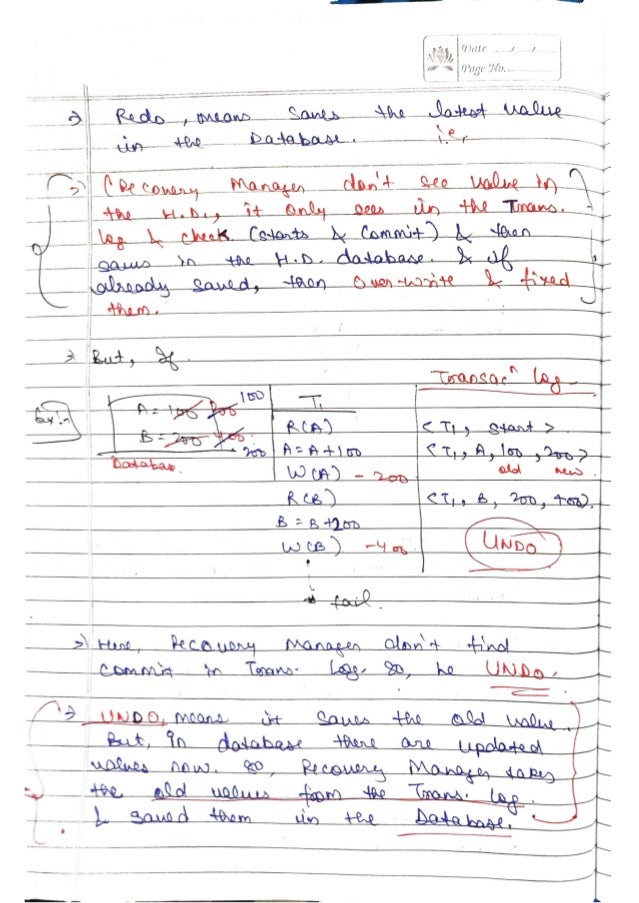 Date / /
Page No.
⇒ Redo, means saves the latest value
in the Database. i.e,
⇒ (Recovery Manager don't see value in
the H.D., it only sees in the Trans.
log & check (starts & commit) & then
saves in the H.D. database. & if
already saved, then over-write & fixed
them.
⇒ But, If
Transacⁿ log
Ex:⇒
A = 100 200 100
B = 200 400 200
Database
T₁
R(A)
A = A+100
W(A) - 200
R(B)
B = B+200
W(B) - 400
fail.
<T₁, start>
<T₁, A, 100, 200>
old new
<T₁, B, 200, 400>.
UNDO
⇒ Here, Recovery Manager don't find
commit in Trans. Log. So, he UNDO.
⇒ UNDO, means it saves the old value.
But, In database there are updated
values now. So, Recovery Manager takes
the old values from the Trans. Log.
& saved them in the Database.